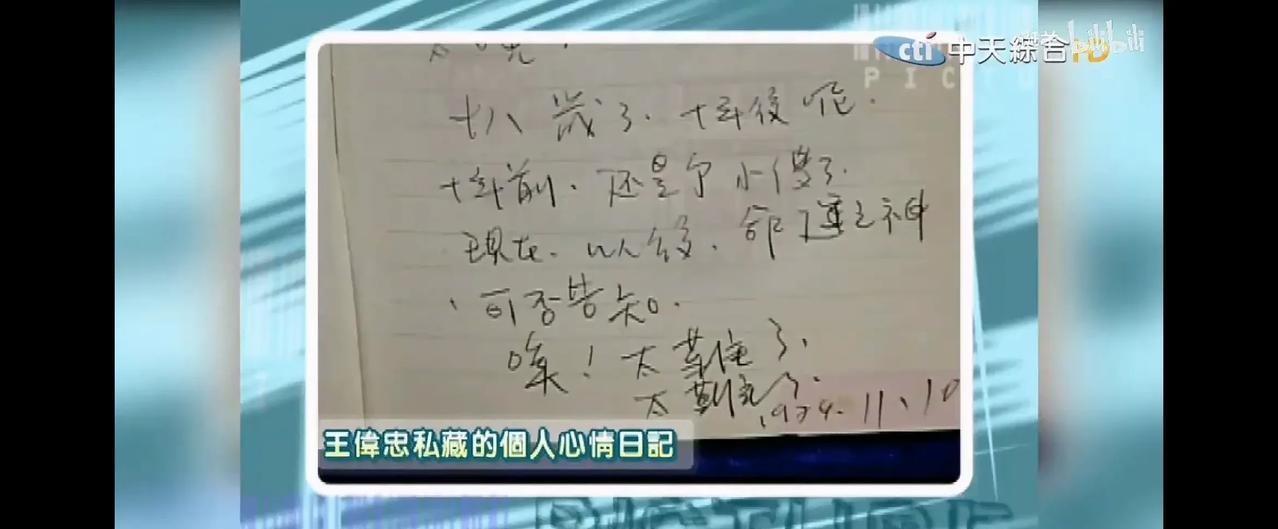 cti 中天綜合HD
bilibili
PICTU
太
十八歲了.十年後呢.
十年前.还是个小傻子.
現在.以後.命運之神
、可否告知.
唉!太難住了.
太難
11、10
王偉忠私藏的個人心情日記
PICTURE